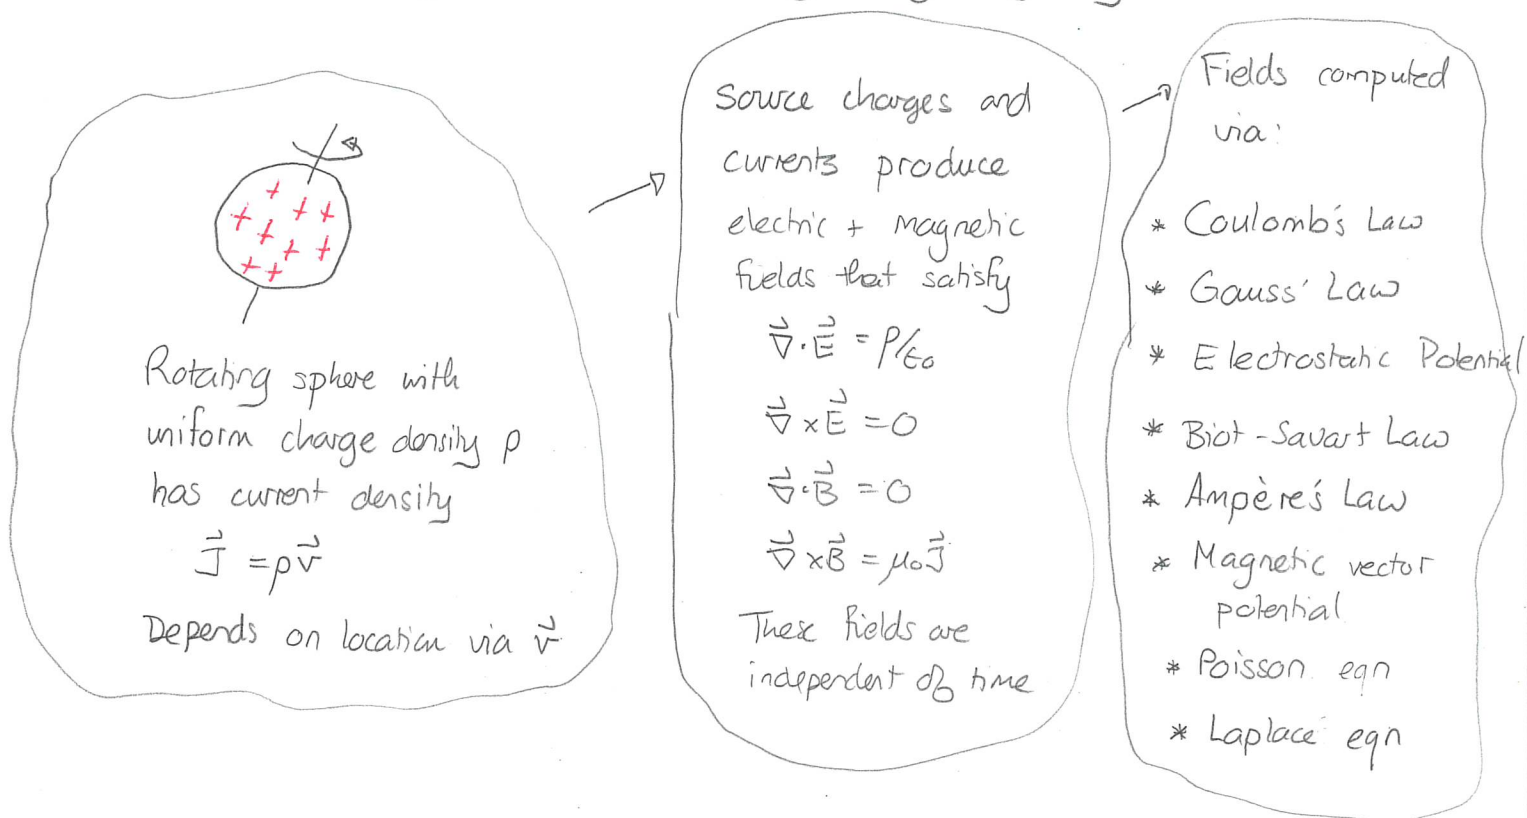 Rotating sphere with
uniform charge density ρ
has current density
J⃗ = ρv⃗
Depends on location via v⃗
Source charges and
currents produce
electric + magnetic
fields that satisfy
∇⃗·E⃗ = ρ/ε₀
∇⃗×E⃗ = 0
∇⃗·B⃗ = 0
∇⃗×B⃗ = μ₀J⃗
These fields are
independent of time
Fields computed
via:
* Coulomb's Law
* Gauss' Law
* Electrostatic Potential
* Biot-Savart Law
* Ampère's Law
* Magnetic vector
potential
* Poisson eqn
* Laplace eqn